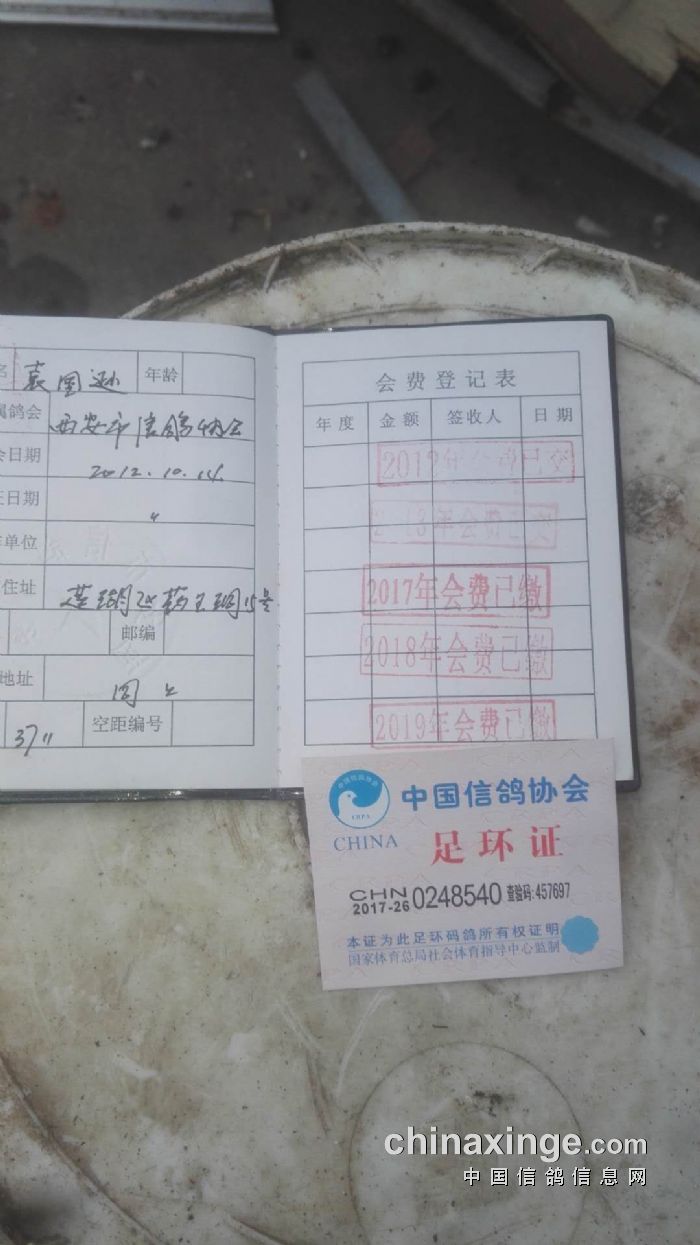 名 袁国逊 年龄
属鸽会 西安市信鸽协会
会日期 2012.10.14.
证日期 〃
作单位
住址 莲湖区药王洞15号
邮编
地址 同上
3711 空距编号
会费登记表
年度 金额 签收人 日期
2012年会费已交
2013年会费已交
2017年会费已缴
2018年会费已缴
2019年会费已缴
中国信鸽协会
CHINA
足环证
CHN
2017-26 0248540 查验码:457697
本证为此足环码鸽所有权证明
国家体育总局社会体育指导中心监制
chinaxinge.com
中国信鸽信息网